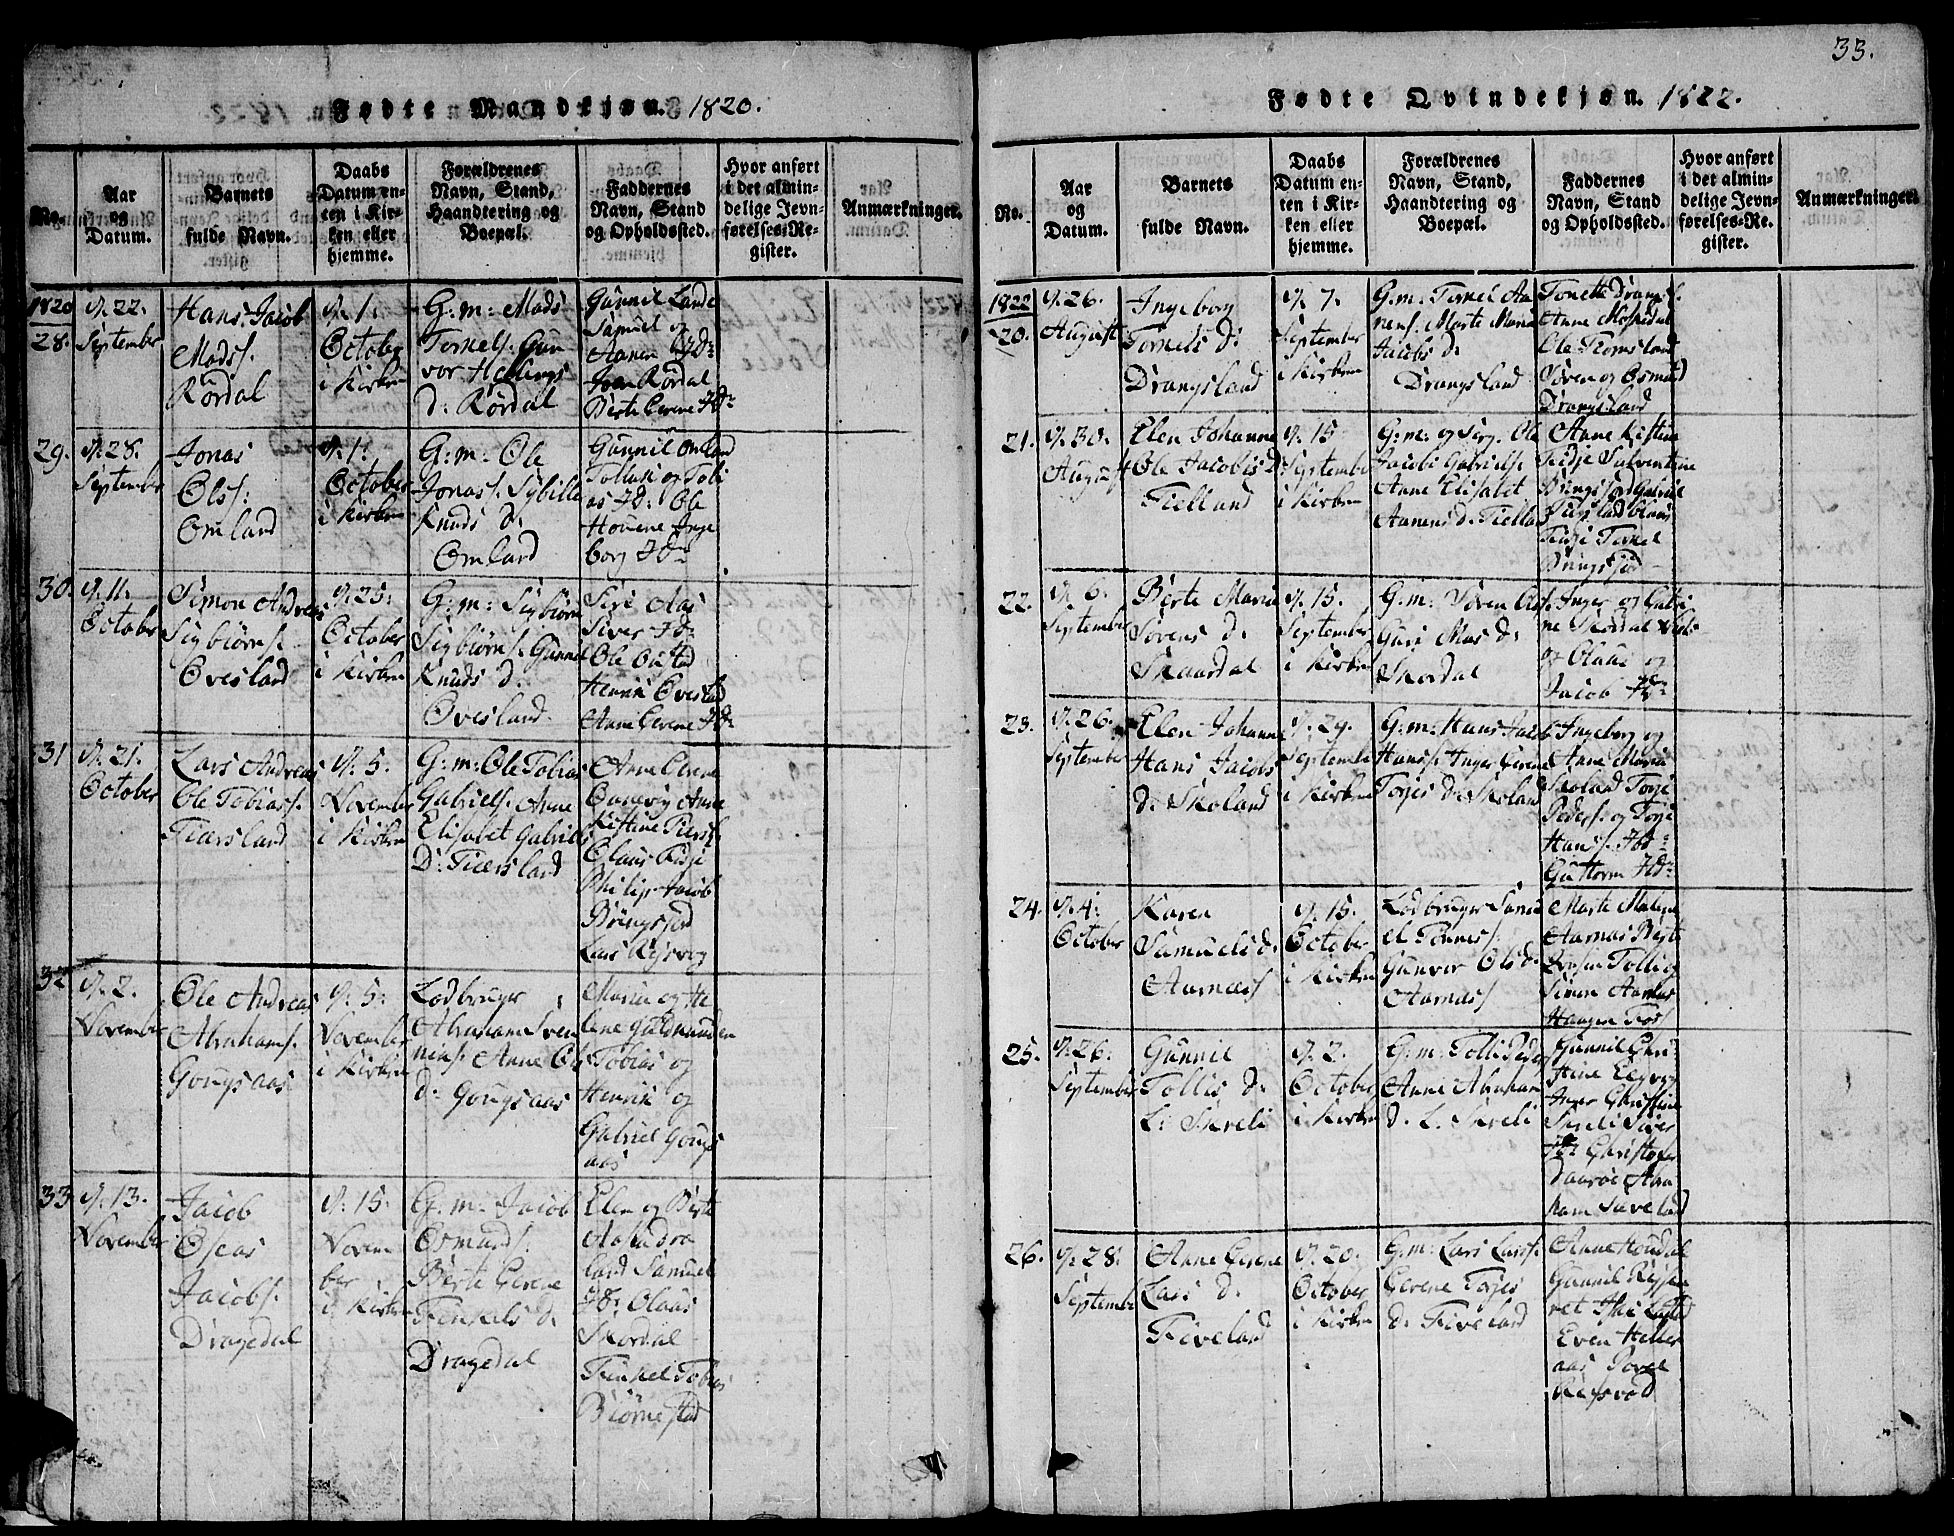 33.
Fødte Mandkjøn. 1820.
No.
Aar
og
Datum.
Barnets
fulde Navn.
Daabs
Datum en-
ten i Kir-
ken eller
hjemme.
Forældrenes
Navn, Stand,
Haandtering og
Boepæl.
Faddernes
Navn, Stand
og Opholdssted.
Hvor anført
i det almin-
delige Jevn-
førelses-Re-
gister.
Anmærkninger.
1820
28.
d. 22.
September
Hans Jacob
Mads s.
Rördal
d. 1.
October
i Kirken
G: m: Mads
Torkels. Gun
vor Hellings
d: Rördal
Gunnil Lande
Samuel og
Aanen Jd:
Joen Rördal
Berte Serene Jd:
29.
d. 28.
September
Jonas
Ols s:
Omland
d. 1.
October
i Kirken
G: m: Ole
Jonas s. Sybille
Knuds d.
Omland
Gunnil Omland
Tollak og Tobi
as Jd: Ole
Houene Inge
borg Jd:
30.
d. 11.
October
Simon Andreas
Sigbiörn s.
Ovesland
d. 25.
October
i Kirken
G: m: Sigbiörn
Sigbiörn s. Gunnel
Knuds d.
Ovesland
Siri Aas
Siver Jd:
Ole
Henrik Ovesland
Anne Serene Jd:
31
d. 21.
October
Lars Andreas
Ole Tobias s.
Fiærsland
d. 5.
November
i Kirken
G: m: Ole Tobias
Gabriels. Anne
Elisabet Gabriels
D: Fiærsland
Anne Serene
Anne
Kistine Fiersl.
Claus Fidje
Philip Jacob
Bringsjord
Lars Rejsvog
32
d. 2.
November
Ole Andreas
Abraham s.
Gougsaas
d. 5.
November
i Kirken
Lodbruger
Abraham Sven
nins. Anne Ols
d: Gougsaas
Maria og He
lene
Tobias og
Henrik og
Gabriel Gougs
aas
33
d. 13.
November
Jacob
Oseas
Jacob s.
Dragedal
d. 15.
Novem
ber
i Kirken
G: m: Jacob
Osmund s.
Berte Serene
Tenkels d.
Dragedal
Elen og Berte
land Samuel
Jd: Olaus
Skordal
Tenkel Tobias
Biörnestad
Fødte Qvindekjøn. 1822.
No.
Aar
og
Datum.
Barnets
fulde Navn.
Daabs
Datum en-
ten i Kir-
ken eller
hjemme.
Forældrenes
Navn, Stand,
Haandtering og
Boepæl.
Faddernes
Navn, Stand
og Opholdssted.
Hvor anført
i det almin-
delige Jevn-
førelses-Re-
gister.
Anmærkninger.
1822
20.
d. 26.
August
Ingeborg
Torkels d:
Drangsland
d. 7.
September
i Kirken
G: m: Torkel Aa
nens. Marte Maria
Jacobs d:
Drangsland
Tonette Drangsl.
Anne Mosedal
Ole Romsland
Sören og Osmund
Drangsland
21.
d. 30.
August
Elen Johanne
Ole Jacobs d:
Fielland
d. 15
September
i Kirken
G: m: og Serg. Ole
Jacob Gabriels.
Anne Elisabet
Aanens d. Fielland
Anne Kistine
Fidje
Bringsjord Gabriel
Fidje Torkel
Bringsjord
22.
d. 6.
September
Berte Maria
Sörens d:
Skaardal
d. 15.
September
i Kirken
G: m: Sören Ols.
Guri Mas d:
Skordal
Inger og Catri
ne Skordal
og Olaus og
Jacob Jd:
23.
d. 26.
September
Elen Johanne
Hans Jacobs
D: Skoland
d. 29.
September
i Kirken
G: m: Hans Jacob
Hans s. Inger Serene
Torjes d: Skoland
Ingeborg og
Anne Maria
Skoland Torje
Peders. og Torje
Hans s. Ibd:
Guttorm Jd:
24.
d. 4.
October
Karen
Samuels d:
Aamæs
d. 15.
October
i Kirken
Lodbruger Samu
el Tönnes s.
Gunver Ols d.
Aamæs
Marte Malene
Aamas Berte
Tolli og
Simon Aamas
Haagen Fos
25.
d. 26.
September
Gunnil
Tollis d:
L: Skreli
d. 2.
October
i Kirken
G: m: Tolli Peders
Anne Abraham
d. L. Skreli
Gunnil Chri
stine Elgvog
Inger Christine
Skreli Siver
Jd: Christofer
Abra
ham Saveland
26.
d. 28.
September
Anne Serene
Lars d:
Fiveland
d. 20.
October
i Kirken
G: m: Lars Lars s.
Serene Torjes
d: Fiveland
Anne Houdal
Gunnil
Even Heller
aas Povel